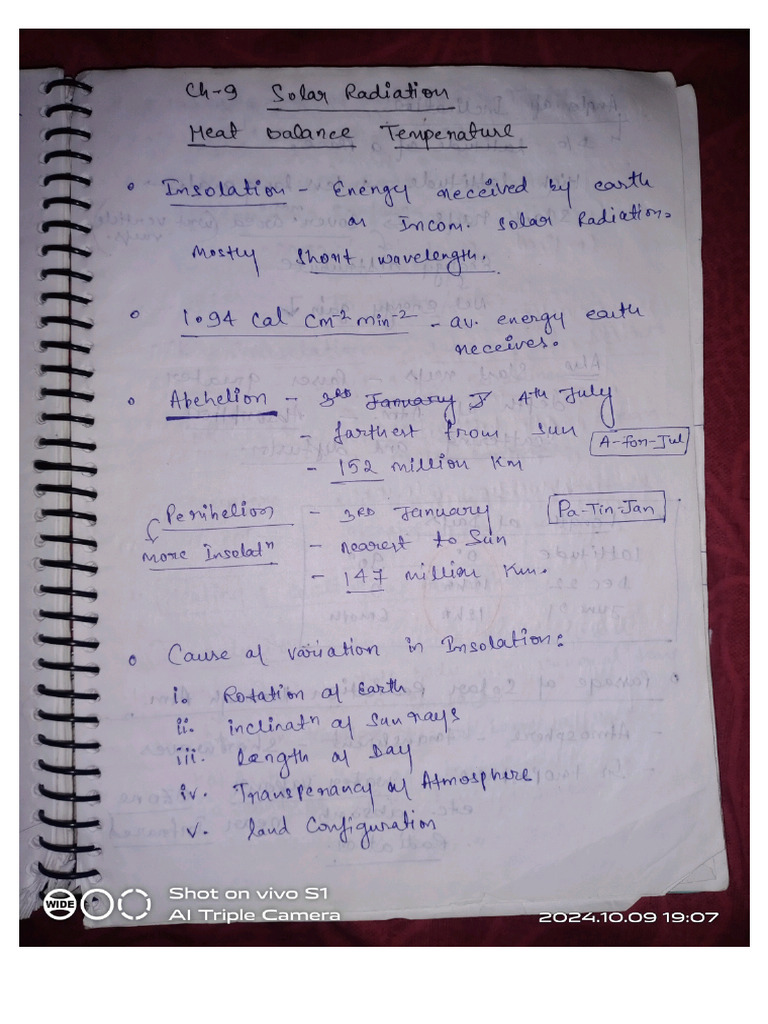 Ch-9 Solar Radiation
Heat balance Temperature
• Insolation - Energy received by earth
or Incom. Solar Radiation.
Mostly Short wavelength.
• 1.94 Cal Cm-2 min-2 - av. energy earth
receives.
• Apehelion - 3RD January 4th July
- farthest from sun
A-for-Jul
- 152 million Km
Perihelion - 3RD January
Pa-Tin-Jan
More Insolatn - nearest to Sun
- 147 million Km.
• Cause of variation in Insolation:
i. Rotation of Earth
ii. inclinatn of Sun rays
iii. Length of Day
iv. Transperancy of Atmosphere
v. land Configuration
WIDE
Shot on vivo S1
AI Triple Camera
2024.10.09 19:07